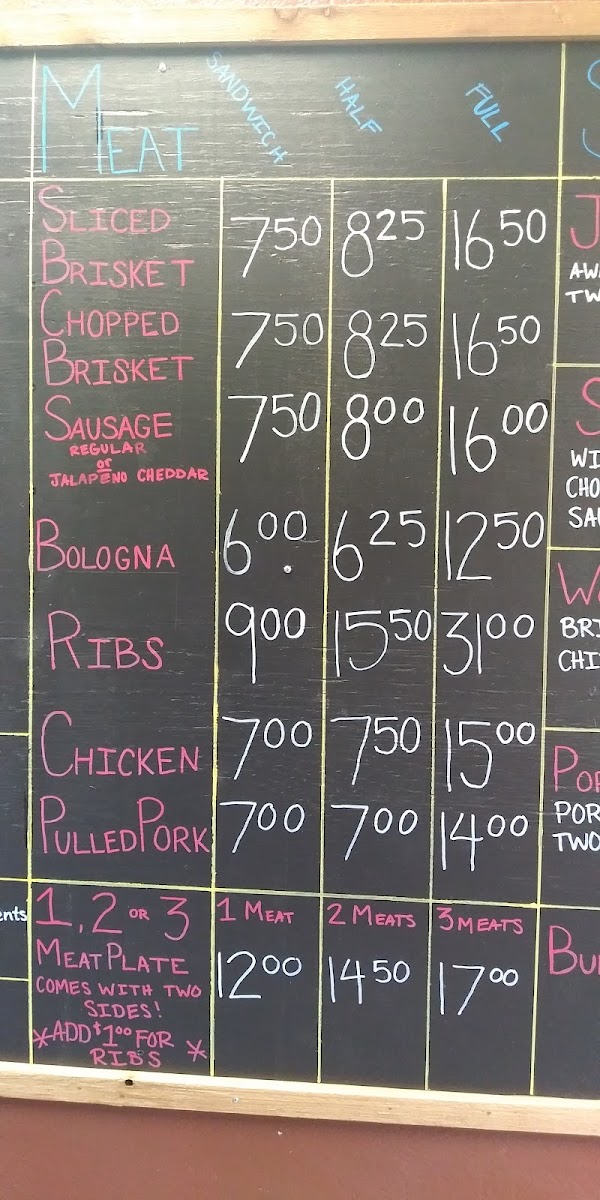 MEAT SANDWICH HALF FULL
SLICED
BRISKET 7 50 8 25 16 50
CHOPPED
BRISKET 7 50 8 25 16 50
SAUSAGE 7 50 8 00 16 00
REGULAR
or
JALAPENO CHEDDAR
BOLOGNA 6 00 6 25 12 50
RIBS 9 00 15 50 31 00
CHICKEN 7 00 7 50 15 00
PULLED PORK 7 00 7 00 14 00
1, 2 OR 3 1 MEAT 2 MEATS 3 MEATS
MEAT PLATE 12 00 14 50 17 00
COMES WITH TWO
SIDES!
*ADD $1 00 FOR
RIBS *
TWO